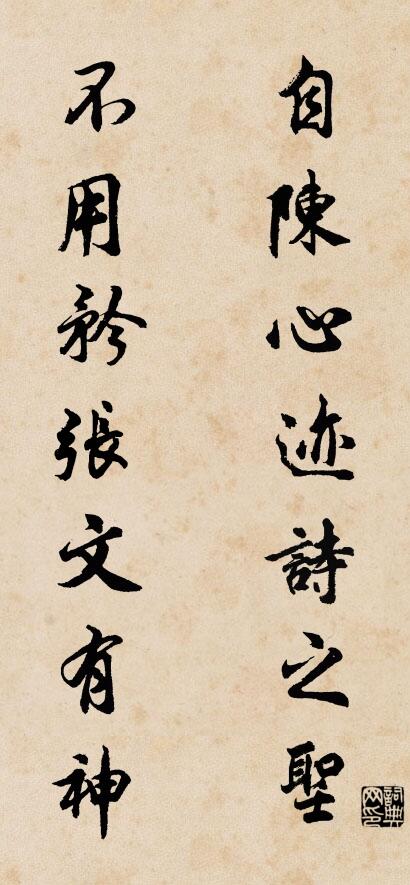 自陳心迹詩之聖
不用矜張文有神
詞典网印